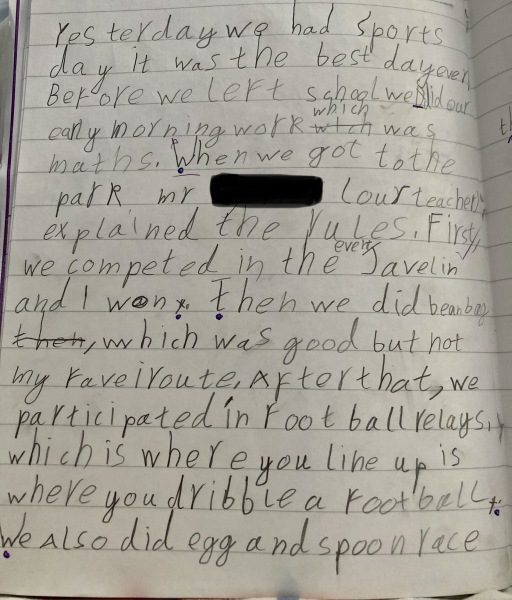 Yesterday we had Sports
day it was the best day ever
Before we left school we did our
early morning work which wtch was
maths. When we got to the
park mr (our teacher)
explained the rules. First,
we competed in the every Javelin
and I won. Then we did beanbag
then, which was good but not
my faveiroute, After that, we
participated in football relays,
which is where you line up is
where you dribble a football.
We Also did egg and spoon race